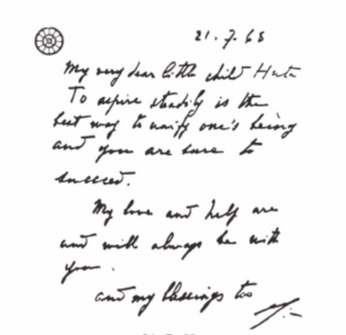 21.7.65
My very dear little child Huta
To aspire steadily is the
best way to unify one's being
and you are sure to
succeed.
My love and help are
and will always be with
you.
and my blessings too